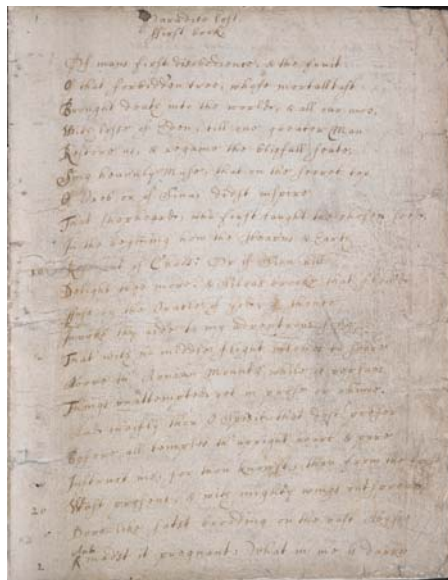 Paradise lost
First book
Of mans first disobedience, & the fruit
Of that forbidden tree, whose mortall tast
Brought death into the world, & all our woe,
With losse of Eden, till one greater Man
Restore us, & regaine the blissfull seate,
Sing heavenly Muse, that on the secret top
Of Oreb or of Sinai didst inspire
That shepheard, who first taught the chosen seed,
In the beginning how the Heavens & Earth
10
out of Chaos: Or if Sion hill
Delight thee more, & Siloas brooke that
the Oracle of I thence
Invoke thy aide to my
That with no middle flight intends to soare
Above the Aonian Mount, while it pursues
Things unattempted yet in prose or rhime.
And cheifly thou O Spirit that dost prefer
Before all temples the upright heart & pure
Instruct me, for thou knowst, thou from the
20
Wast present, & with mighty wings
Dove like satst brooding on the vast Abysse
madst it pregnant: What in me is darke